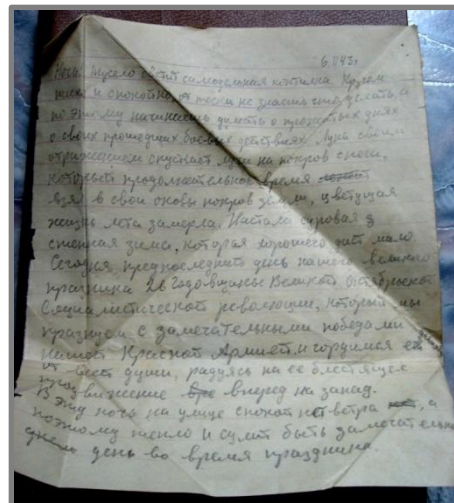 6. XI 43г.
Ночь. Тускло светит самодельная коптилка. Кругом
тихо и спокойно, от тоски не знаешь что делать, а
по этому начинаешь думать о прожитых днях
о своих прошедших боевых действиях. Луна своим
отражением спускает лучи на покров снега,
который продолжительное время
взял в свои оковы покров земли, цветущая
жизнь лета замерла. Настала суровая
снежная зима, которая хорошего даёт мало
Сегодня, предпоследний день нашего великого
праздника 26 Годовщины Великой Октябрьской
Социалистической революции, который мы
празнуем с замечательными победами
нашей Красной Армией, и гордимся ей
от всей души, радуясь на её блестящее
продвижение вперед на запад.
В эту ночь на улице спокой нет ветра, а
поэтому тепло и сулит быть замечательным
день во время праздника.